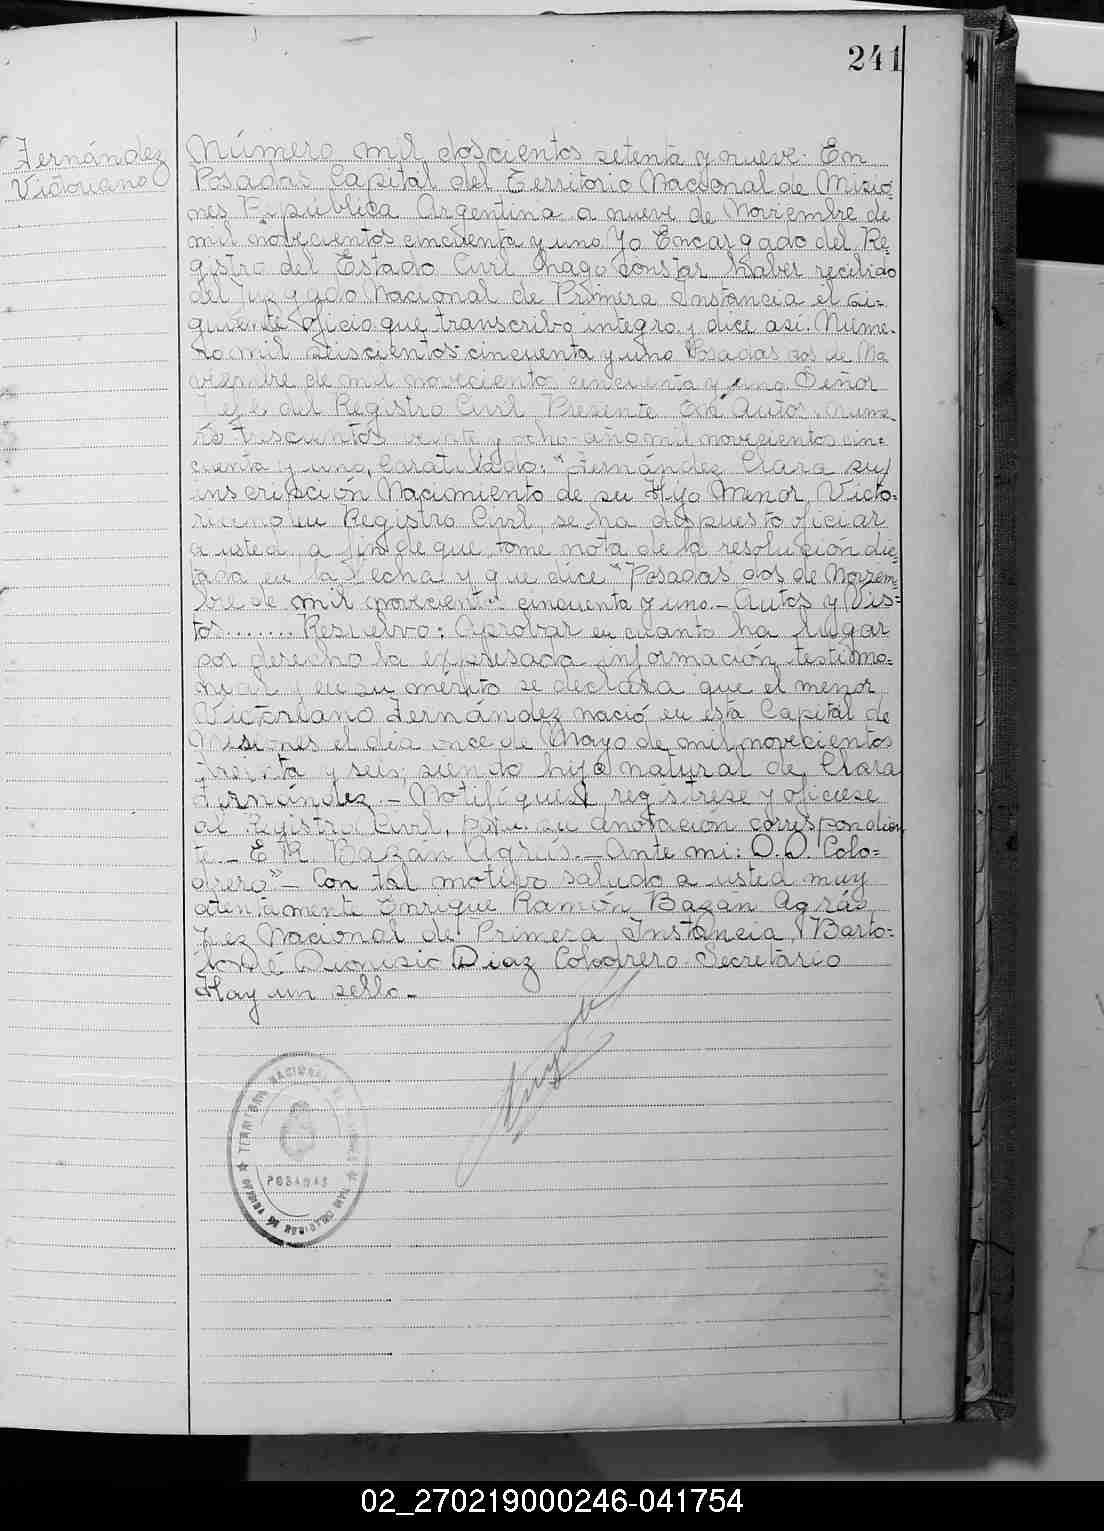 241
Fernández
Victoriano
Número mil doscientos setenta y nueve. En
Posadas Capital del Territorio Nacional de Misio-
nes República Argentina a nueve de Noviembre de
mil novecientos cincuenta y uno. Yo Encargado del Re-
gistro del Estado Civil hago constar haber recibido
del Juzgado Nacional de Primera Instancia el si-
guiente oficio que transcribo integro y dice así. Núme-
ro mil seiscientos cincuenta y uno Posadas dos de No
viembre de mil novecientos cincuenta y uno Señor
Jefe del Registro Civil Presente En Autos. Nume-
ro trescientos veinte y ocho año mil novecientos cin-
cuenta y uno, Caratulado: "Fernández Clara su/
inscripción Nacimiento de su Hijo Menor Victo-
riano en Registro Civil, se ha dispuesto oficiar
a usted a fin de que tome nota de la resolución dic-
tada en la fecha y que dice "Posadas dos de Noviem-
bre de mil novecientos cincuenta y uno.- Autos y Vis-
tos........ Resuelvo: Aprobar en cuanto ha lugar
por derecho la expresada información testimo-
nial y en su mérito se declara que el menor
Victoriano Fernández nació en esta Capital de
Misiones el día once de Mayo de mil novecientos
treinta y seis, siendo hijo natural de Clara
Fernández.- Notifíquese, regístrese y ofíciese
al Registro Civil, para su anotación correspondien
te.- E R. Bazán Agrás.- Ante mi: D.D. Colo-
drero"- Con tal motivo saludo a usted muy
atentamente Enrique Ramón Bazán Agrás
Juez Nacional de Primera Instancia, Barto-
lomé Dionisio Diaz Colodrero Secretario
Hay un sello.-
TERRITORIO NACIONAL DE MISIONES
POSADAS
02_270219000246-041754